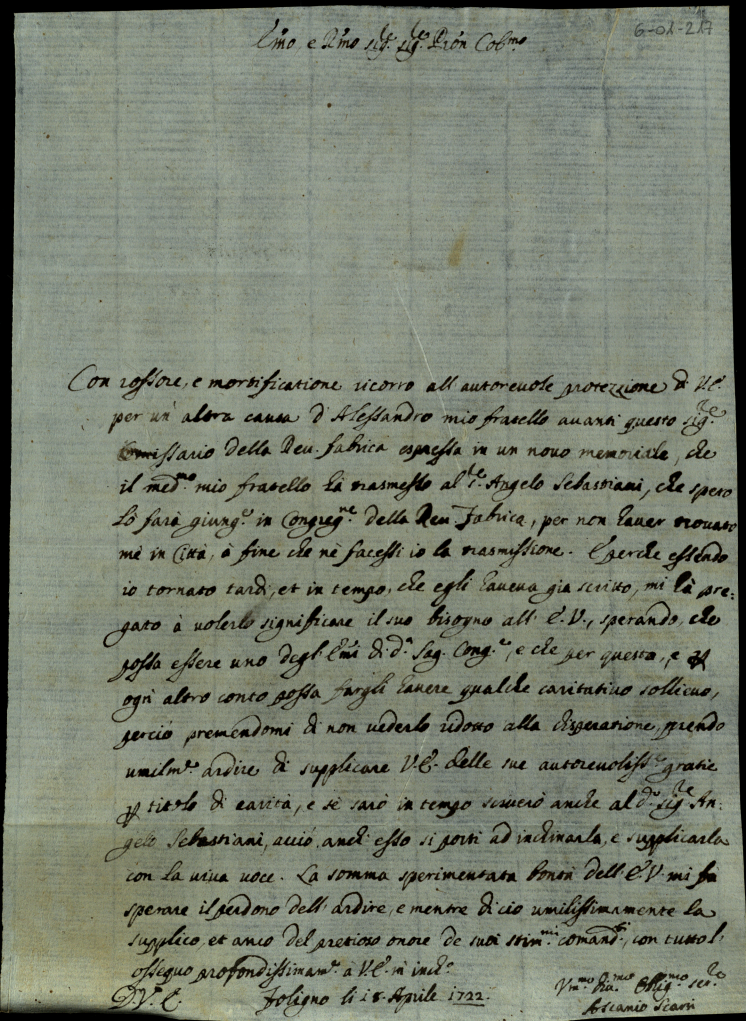 6-01-217
Emo, e Rmo Sig.r Sig.re Pròn Colmo
Con rossore, e mortificatione ricorro all'autorevole protezzione di V.E.
per un'altra causa d'Alessandro mio fratello avanti questo Sig.re
Comissario della Reu. fabrica espressa in un novo memoriale, che
il med.mo mio fratello hà trasmesso al S.re Angelo Sebastiani, che spero
lo farà giung.e in Congreg.ne della Reu. Fabrica, per non haver trovato
mè in Città, à fine che nè facessi io la trasmissione. E perche essendo
io tornato tardi, et in tempo, che egli haveva già scritto, mi hà pre:
gato à volerlo significare il suo bisogno all'E.V., sperando, che
possa essere uno degl'Emi di d.a Sag. Cong.e, e che per questa, e p
ogni altro conto possa fargli havere qualche caritativo sollievo,
perciò premendomi di non vederlo ridotto alla disperatione, prendo
umilm.e ardire di supplicare V.E. delle sue autorevoliss.e gratie
p titolo di carità, e sè sarò in tempo scriverò anche al d.o Sig.re An:
gelo Sebastiani, acciò anch'esso si porti ad inchinarla, e supplicarla
con la viva voce. La somma sperimentata bontà dell'E.V. mi fà
sperare il perdono dell'ardire, e mentre di ciò umilissimamente la
supplico, et anco del pretioso onore de suoi stim.mi comand.i, con tutto l'
ossequo profondissimam.e à V.E. m'inch.o
D.V.E. Foligno li 18 Aprile 1722.
Vm.mo Oblig.mo ser.re
Ascanio Scarri